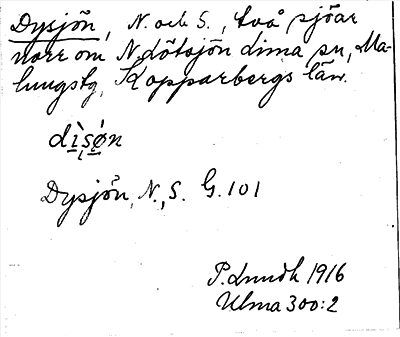 Dysjön, N. och S., två sjöar
norr om N. Lötsjön Lima sn, Ma-
lungstg, Kopparbergs län.
dìsøn
Dysjön, N., S. G. 101
P. Lundh 1916
Ulma 300:2